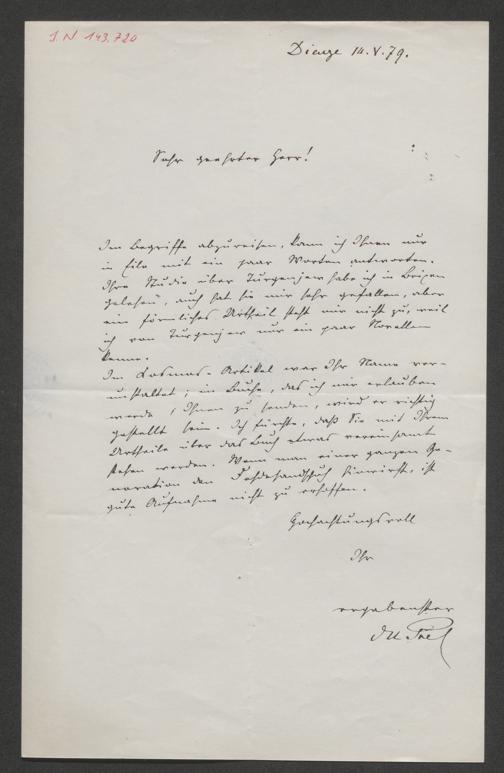 I. N 143.720
14. V. 79.
Sehr geehrter Herr!
Im Begriffe abzureisen, kann ich Ihnen nur
in Eile mit ein paar Worten antworten.
Ihre Studie über Turgenjew habe ich in Brixen
gelesen, auch hat sie mir sehr gefallen, aber
ein förmliches Urtheil steht mir nicht zu, weil
ich von Turgenjew nur ein paar Novellen
kenne.
Im Kosmos-Artikel war Ihr Name ver-
unstaltet; im Buche, das ich mir erlauben
werde, Ihnen zu senden, wird er richtig
gestellt sein. Ich fürchte, daß Sie mit Ihrem
Urtheile über das Buch etwas vereinsamt
stehen werden. Wenn man einer ganzen Ge-
neration den Fehdehandschuh hinwirft, ist
gute Aufnahme nicht zu erhoffen.
Hochachtungsvoll
Ihr
ergebenster
du Prel